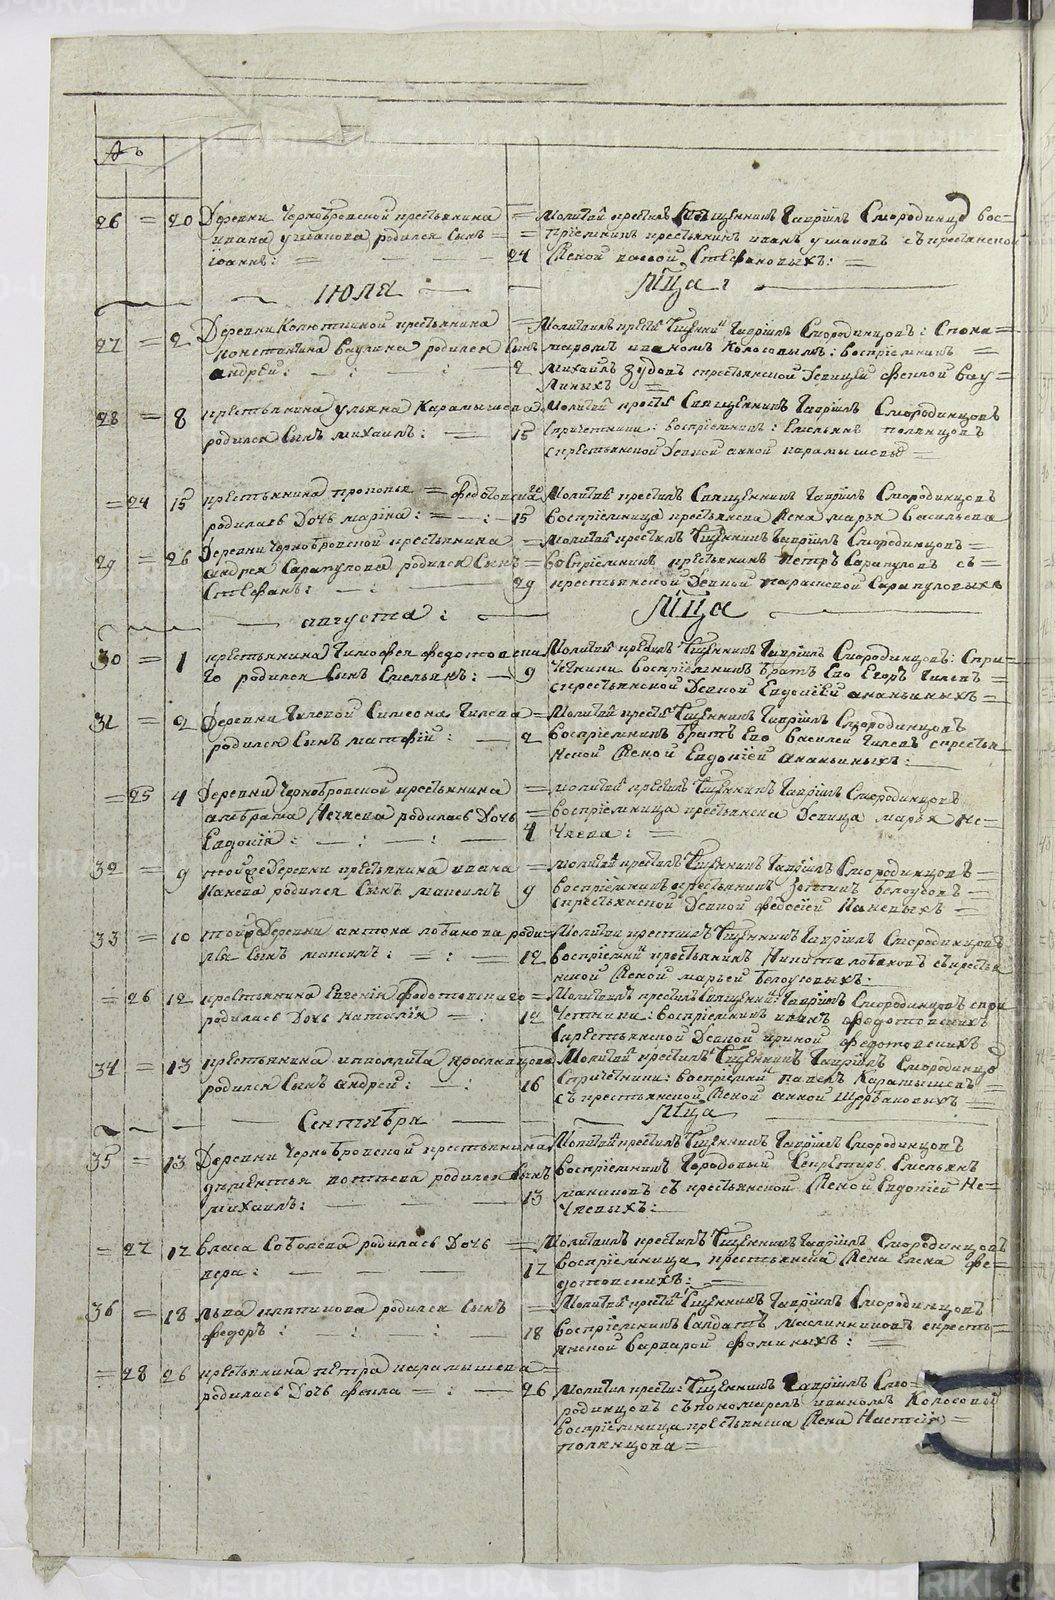 26 = 20 Деревни Чернобровской крестьянина
ивана ушакова родился Сынъ =
иоаннъ: =
= Молитвой крестилъ Священникъ Гаврiилъ Смородинцовъ вос=
= прiемникъ крестьянинъ иванъ ушаковъ съ крестьянской
24 Женой Стефановыхъ: =
июля Мца
27 = 2 Деревни Колюткиной крестьянина
константина ваулина родился Сынъ
андрей:
= Молитвилъ крести Священникъ Гаврiилъ Смородинцовъ:Спона=
маремъ иваномъ Колосовымъ: воспрiемникъ =
2 михаилъ зубовъ скрестьянской Девицей феклой вау=
линыхъ =
28 = 8 крестьянина ульяна Карамышева
родился Сынъ михаилъ: =
Молитвой крести Священникъ Гаврiилъ Смородинцовъ
15 Спричетники: воспрiемникъ: Емельянъ полянцовъ
скрестьянской Девкой анной карамышевы =
= 24 15 крестьянина прокопья = федотовска
родилась Дочь марiна: =
Молитвой крестилъ Священникъ Гаврiилъ Смородинцовъ
15 воспрiемница крестьянска Жена марья васильева
29 = 26 Деревни Чернобровской крестьянина
андрея Сарапулова родился Сынъ
Стефанъ:
= Молитвой крестилъ Священникъ Гаврiилъ Смородинцовъ =
= воспрiемникъ крестьянинъ петръ Сарапуловъ съ =
29 крестьянской Девкой парасковой Сарапуловыхъ
августа: Мца
30 = 1 крестьянина Тимофея федотовска
го родился Сынъ Емельянъ:
Молитвой крестилъ Священникъ Гаврiилъ Смородинцовъ: Спри=
9 четники воспрiемникъ братъ Его Егоръ Гилевъ =
скрестьянской Девкой Евдокiей ананьиныхъ =
31 = 2 Деревни Гилевой Симеона Гилева =
родился Сынъ матфiй:
Молитвой крести Священникъ Гаврiилъ Смородинцовъ
2 воспрiемникъ братъ Его Василей Гилевъ скрестья
нской Женой Евдокiей ананьиныхъ:
= 25 4 Деревни Чернобровской крестьянина
авбрама Нечаева родилась Дочь
Евдокiя:
= молитвой крестилъ Священникъ Гаврiилъ Смородинцовъ
= воспрiемница крестьянска Девица марья Не=
4 чаева: =
32 = 9 тойже Деревни крестьянина ивана
Панева родился Сынъ максимъ
= молитвой крестилъ Священникъ Гаврiилъ Смородинцовъ =
9 воспрiемникъ крестьянинъ белоусовъ =
скрестьянской Девкой федосiей Паневыхъ =
33 = 10 тойже Деревни антона лобанова роди=
лся Сынъ максимъ: = : =
Молитвой крестилъ Священникъ Гаврiилъ Смородинцовъ
12 воспрiемни крестьянинъ Никита лобановъ съкрестья
нской Женой марьей белоусовыхъ:
= 26 12 крестьянина Евгенiя федотовскаго =
родилась Дочь наталiя = :
Молитвилъ крестилъ Священни: Гаврiилъ Смородинцовъ спри
12 четники: воспрiемникъ иванъ федотовскихъ
скрестьянской Девкой ириной федотовскихъ
34 = 13 крестьянина ипполита ярославцова
родился Сынъ андрей: =
Молитвой крестилъ Священникъ Гаврiилъ Смородинцо
16 Спричетники: воспрiемни павелъ Карамышевъ =
съ крестьянской Женой анной Щербаковыхъ =
Сентября Мца
35 = 13 Деревни Чернобровской крестьянина
дементья коптева родился Сынъ
михаилъ:
Молитвой крестилъ Священникъ Гаврiилъ Смородинцовъ
воспрiемникъ Городовый Секретарь Емельянъ
13 маниковъ съ крестьянской Женой Евдокiей Не=
чаевыхъ:
= 27 17 власа Соболева родилась Дочь
вера:
= Молитвилъ крестилъ Священникъ Гаврiилъ Смородинцовъ
17 воспрiемница крестьянска Жена Елена фе=
дотовскихъ:
36 = 18 льва плотникова родился Сынъ
федоръ:
= Молитвой крести Священникъ Гаврiилъ Смородинцовъ
18 воспрiемникъ Салдатъ масленниковъ скресть=
янской варварой фоминыхъ: =
= 28 26 крестьянина петра карамышева =
родилась Дочь фекла = : =
26 Молитви крести: Священникъ Гаврiилъ Смо=
родинцовъ съ пономаремъ иваномъ Колосовы
воспрiемница крестьянска Жена Настасiя =
полянцова =
METRIKI.GASO-URAL.RU